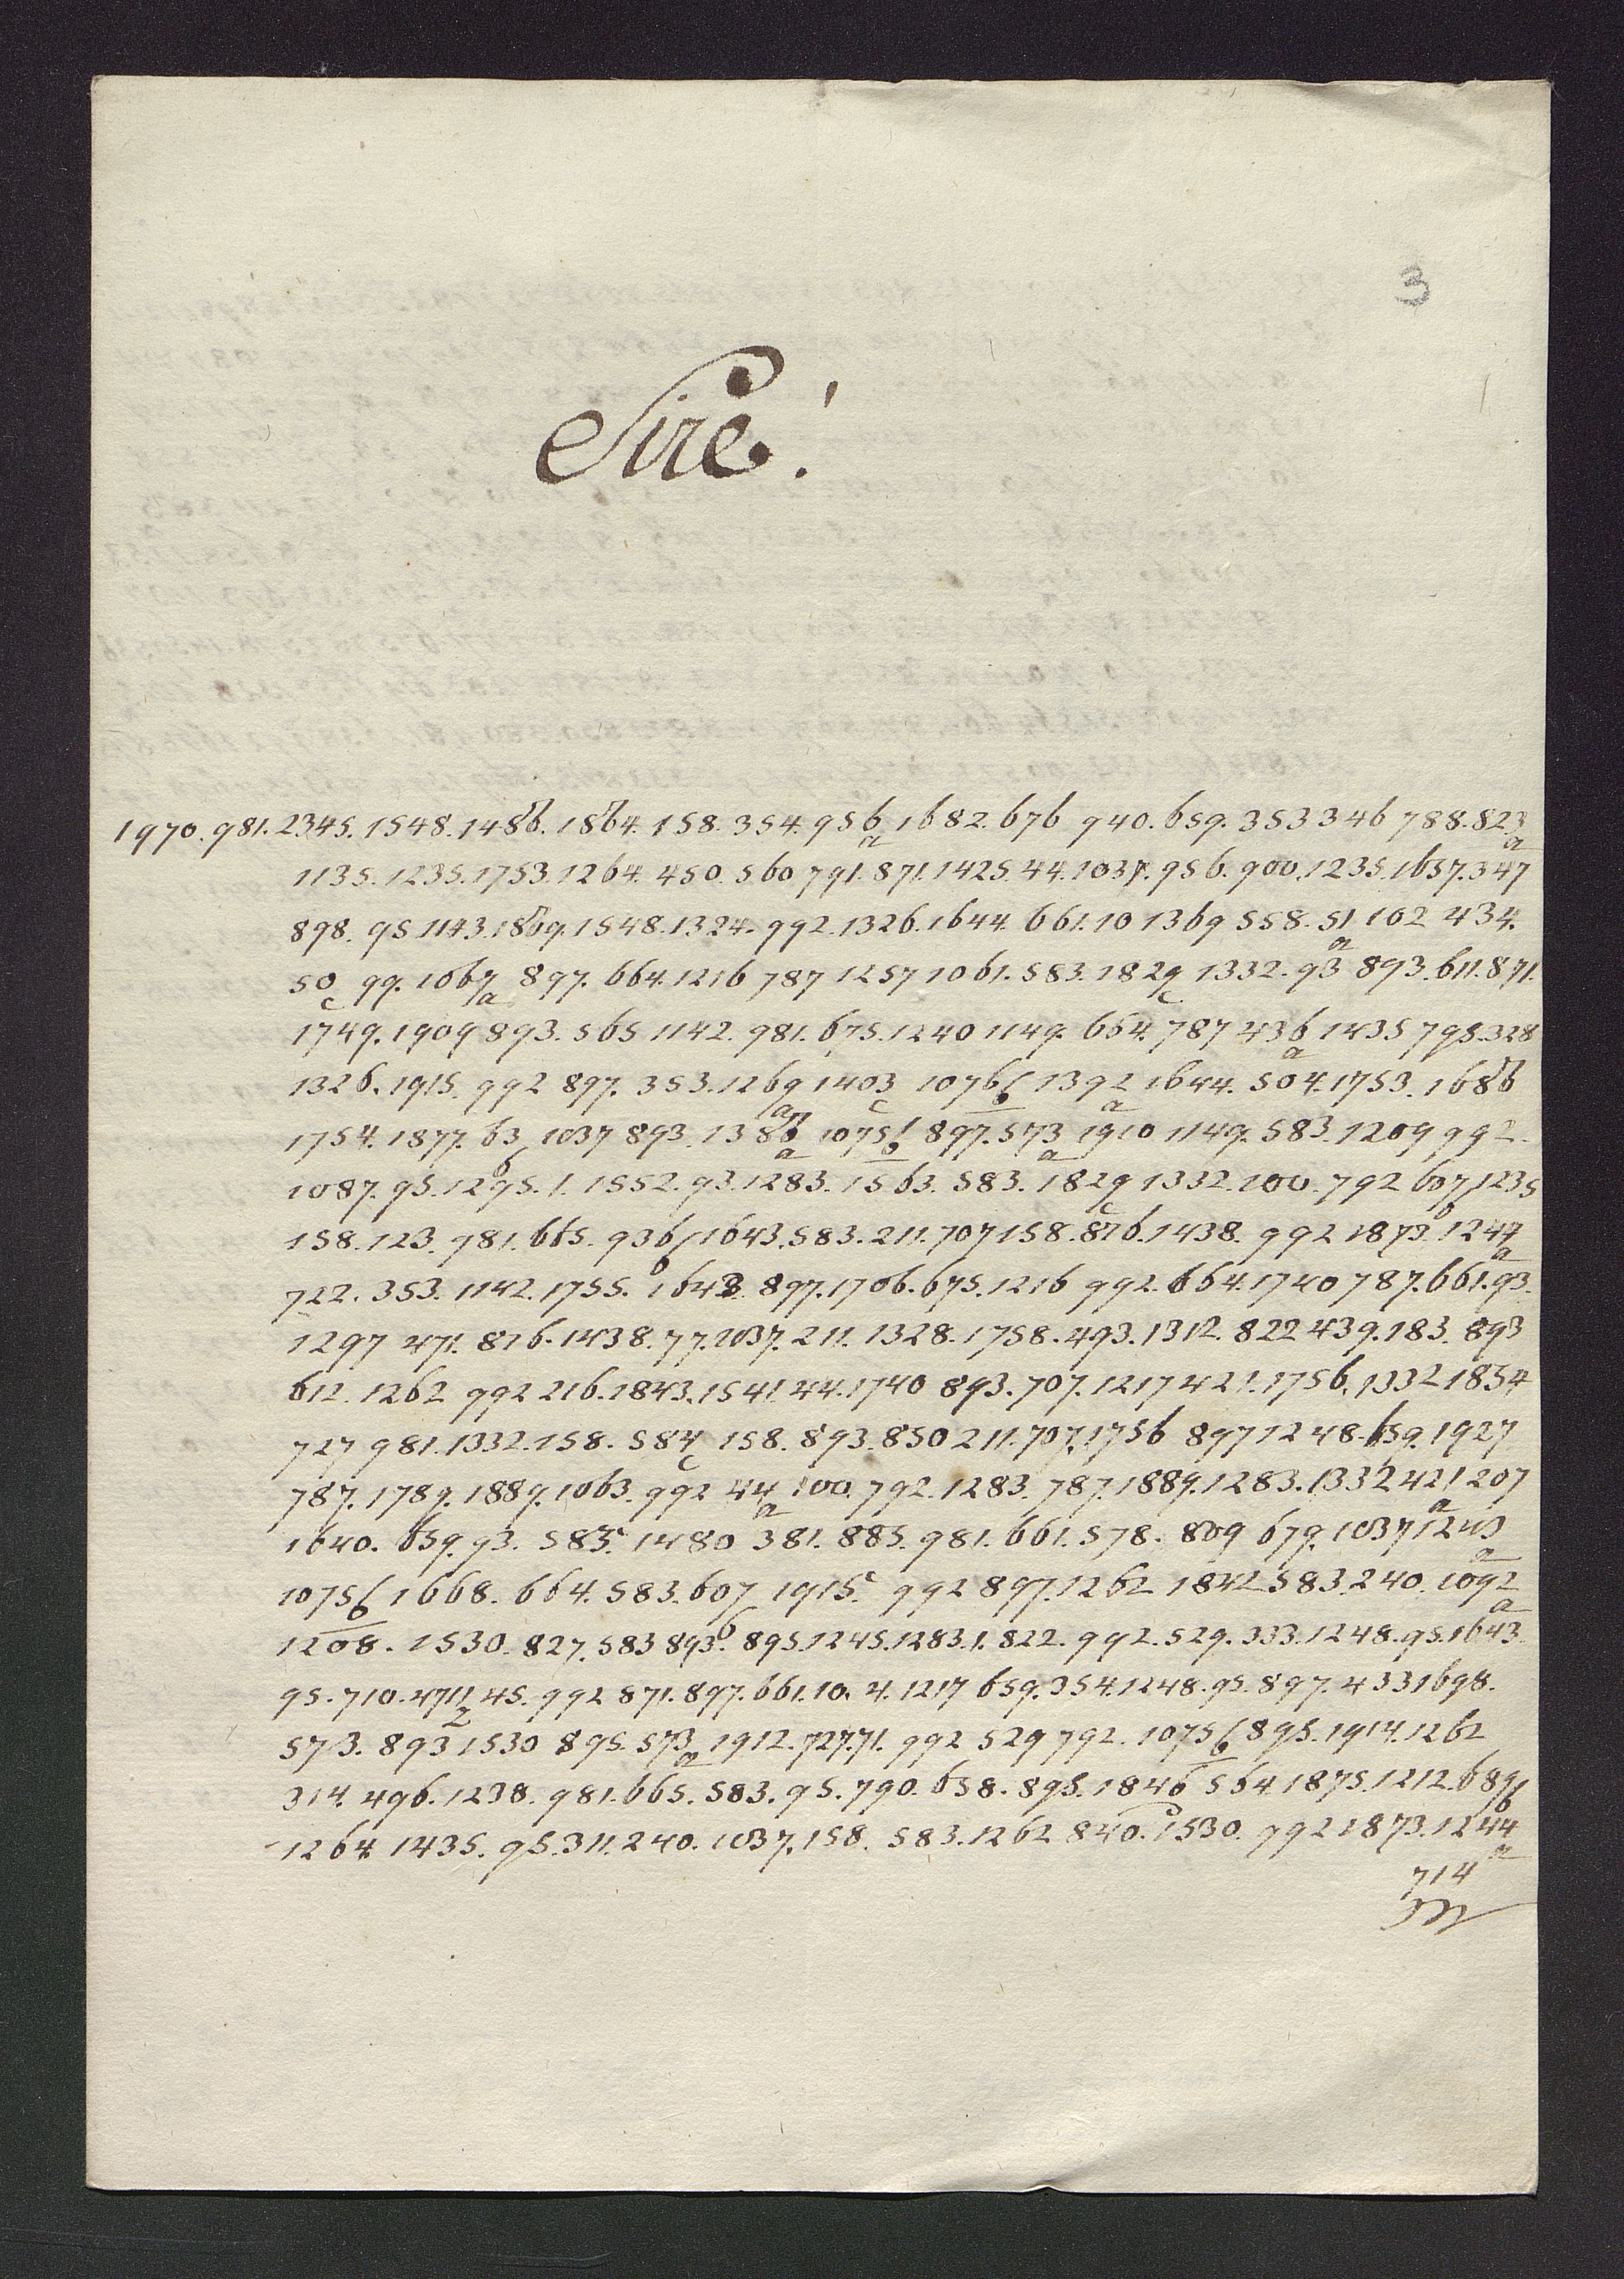 3
Sire!
1970. 981. 2345. 1548. 1486. 1864. 158. 354. 956a 1682. 676 940. 659. 353 346 788. 823a
1135. 1235. 1753. 1264. 450. 560 791. 871. 1425. 44. 1037. 956. 900. 1235. 1657. 347
898. 95 1143. 1869. 1548. 1324. 992. 1326. 1644. 661. 10 1369 558. 51a 102 434.
50c 99. 1067a 897. 664. 1216 787 1257 1061. 583. 1829c 1332. 93 893. 611. 871.
1749. 1909 893. 565 1142. 981. 675. 1240 1149. 664. 787 436a 1435 795. 328
1326. 1915. 992 897. 353. 1269a 1403c 1076b 1392a 1644. 504. 1753. 1686
1754. 1877. 63b 1037 893. 1386a 1075b 897. 573a 1910 1149. 583. 1209 992.
1087. 95. 1295. 1. 1552. 93. 1283. 1563. 583. 1829c 1332. 100. 792 607b 1235
158. 123. 981. 665. 936b 1643. 583. 211. 707 158. 876. 1438. 992 1873. 1244a
722. 353. 1142. 1755. 1643. 897. 1706. 675. 1216 992. 664. 1740 787. 661. 93.
1297 471. 876. 1438. 77. 1037. 211. 1328. 1758. 493. 1312. 822 439. 183. 893
612. 1262 992 216. 1843. 1541 44. 1740 893. 707. 1217 421. 1756. 1332 1854
727 981. 1332. 158. 584c 158. 893. 850 211. 707. 1756 897 1248. 659. 1927
787. 1789. 1889. 1063. 992 44a 100. 792. 1283. 787. 1889. 1283. 1332 421a 207
1640. 659. 93. 585. 1480 381. 885. 981. 661. 578. 809 679. 1037 1243a
1075b 1668. 664. 583. 607b 1915. 992 897. 1262 1842 583. 240. 1092a
1208. 1530. 827. 583 893. 895. 1245. 1283. 1. 822. 992. 529. 333. 1248. 95. 1643.
95. 710. 471z 45. 992 871. 897. 661. 10. 4. 1217 659. 354. 1248. 95. 897. 433 1698.
573. 893 1530 895. 573a 1912. 727. 71. 992 529 792. 1075b 895. 1914. 1262
314. 496. 1238. 981. 665. 583. 95. 790. 658. 895. 1846 564 1875. 1212. 689b
1264 1435. 95. 311. 240. 1037. 158. 583. 1262 840. 1530. 992 1873. 1244a
714